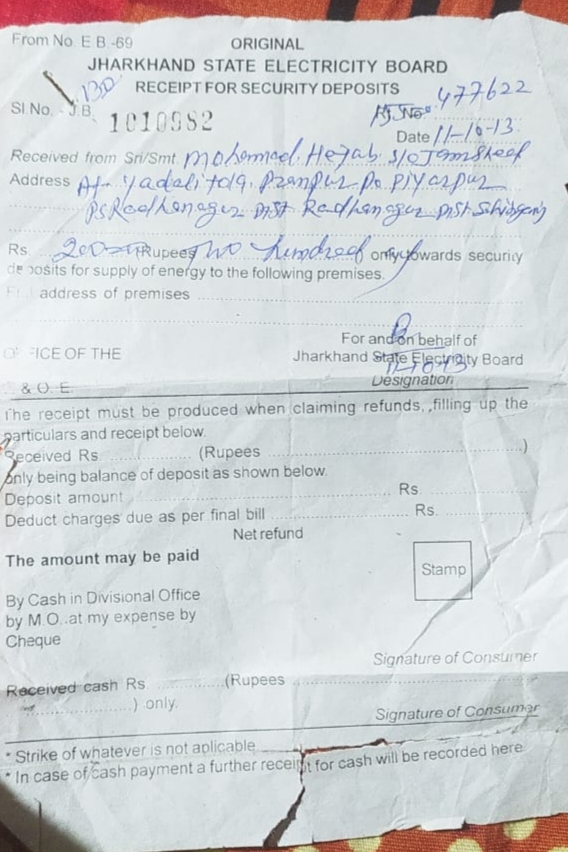 From No. E.B.-69
ORIGINAL
JHARKHAND STATE ELECTRICITY BOARD
RECEIPT FOR SECURITY DEPOSITS
477622
Sl No. J.B. 1010982
Date 11-10-13
Received from Sri/Smt. Mohammad. Hejab. S/o Jamsheed
Address At- Pranpur Po. Piyarpur
Ps Radhanagar Dist Radhanagar Dist. Sahibganj
Rs 200 (Rupees Two hundred only towards security
deposits for supply of energy to the following premises.
address of premises
For and on behalf of
OFFICE OF THE Jharkhand State Electricity Board
11-10-13
& O. E. Designation
The receipt must be produced when claiming refunds, filling up the
particulars and receipt below.
Received Rs. (Rupees )
only being balance of deposit as shown below.
Deposit amount Rs.
Deduct charges due as per final bill Rs.
Net refund
The amount may be paid
Stamp
By Cash in Divisional Office
by M.O. at my expense by
Cheque
Signature of Consumer
Received cash Rs (Rupees
) only.
Signature of Consumer
* Strike of whatever is not aplicable
* In case of cash payment a further receipt for cash will be recorded here